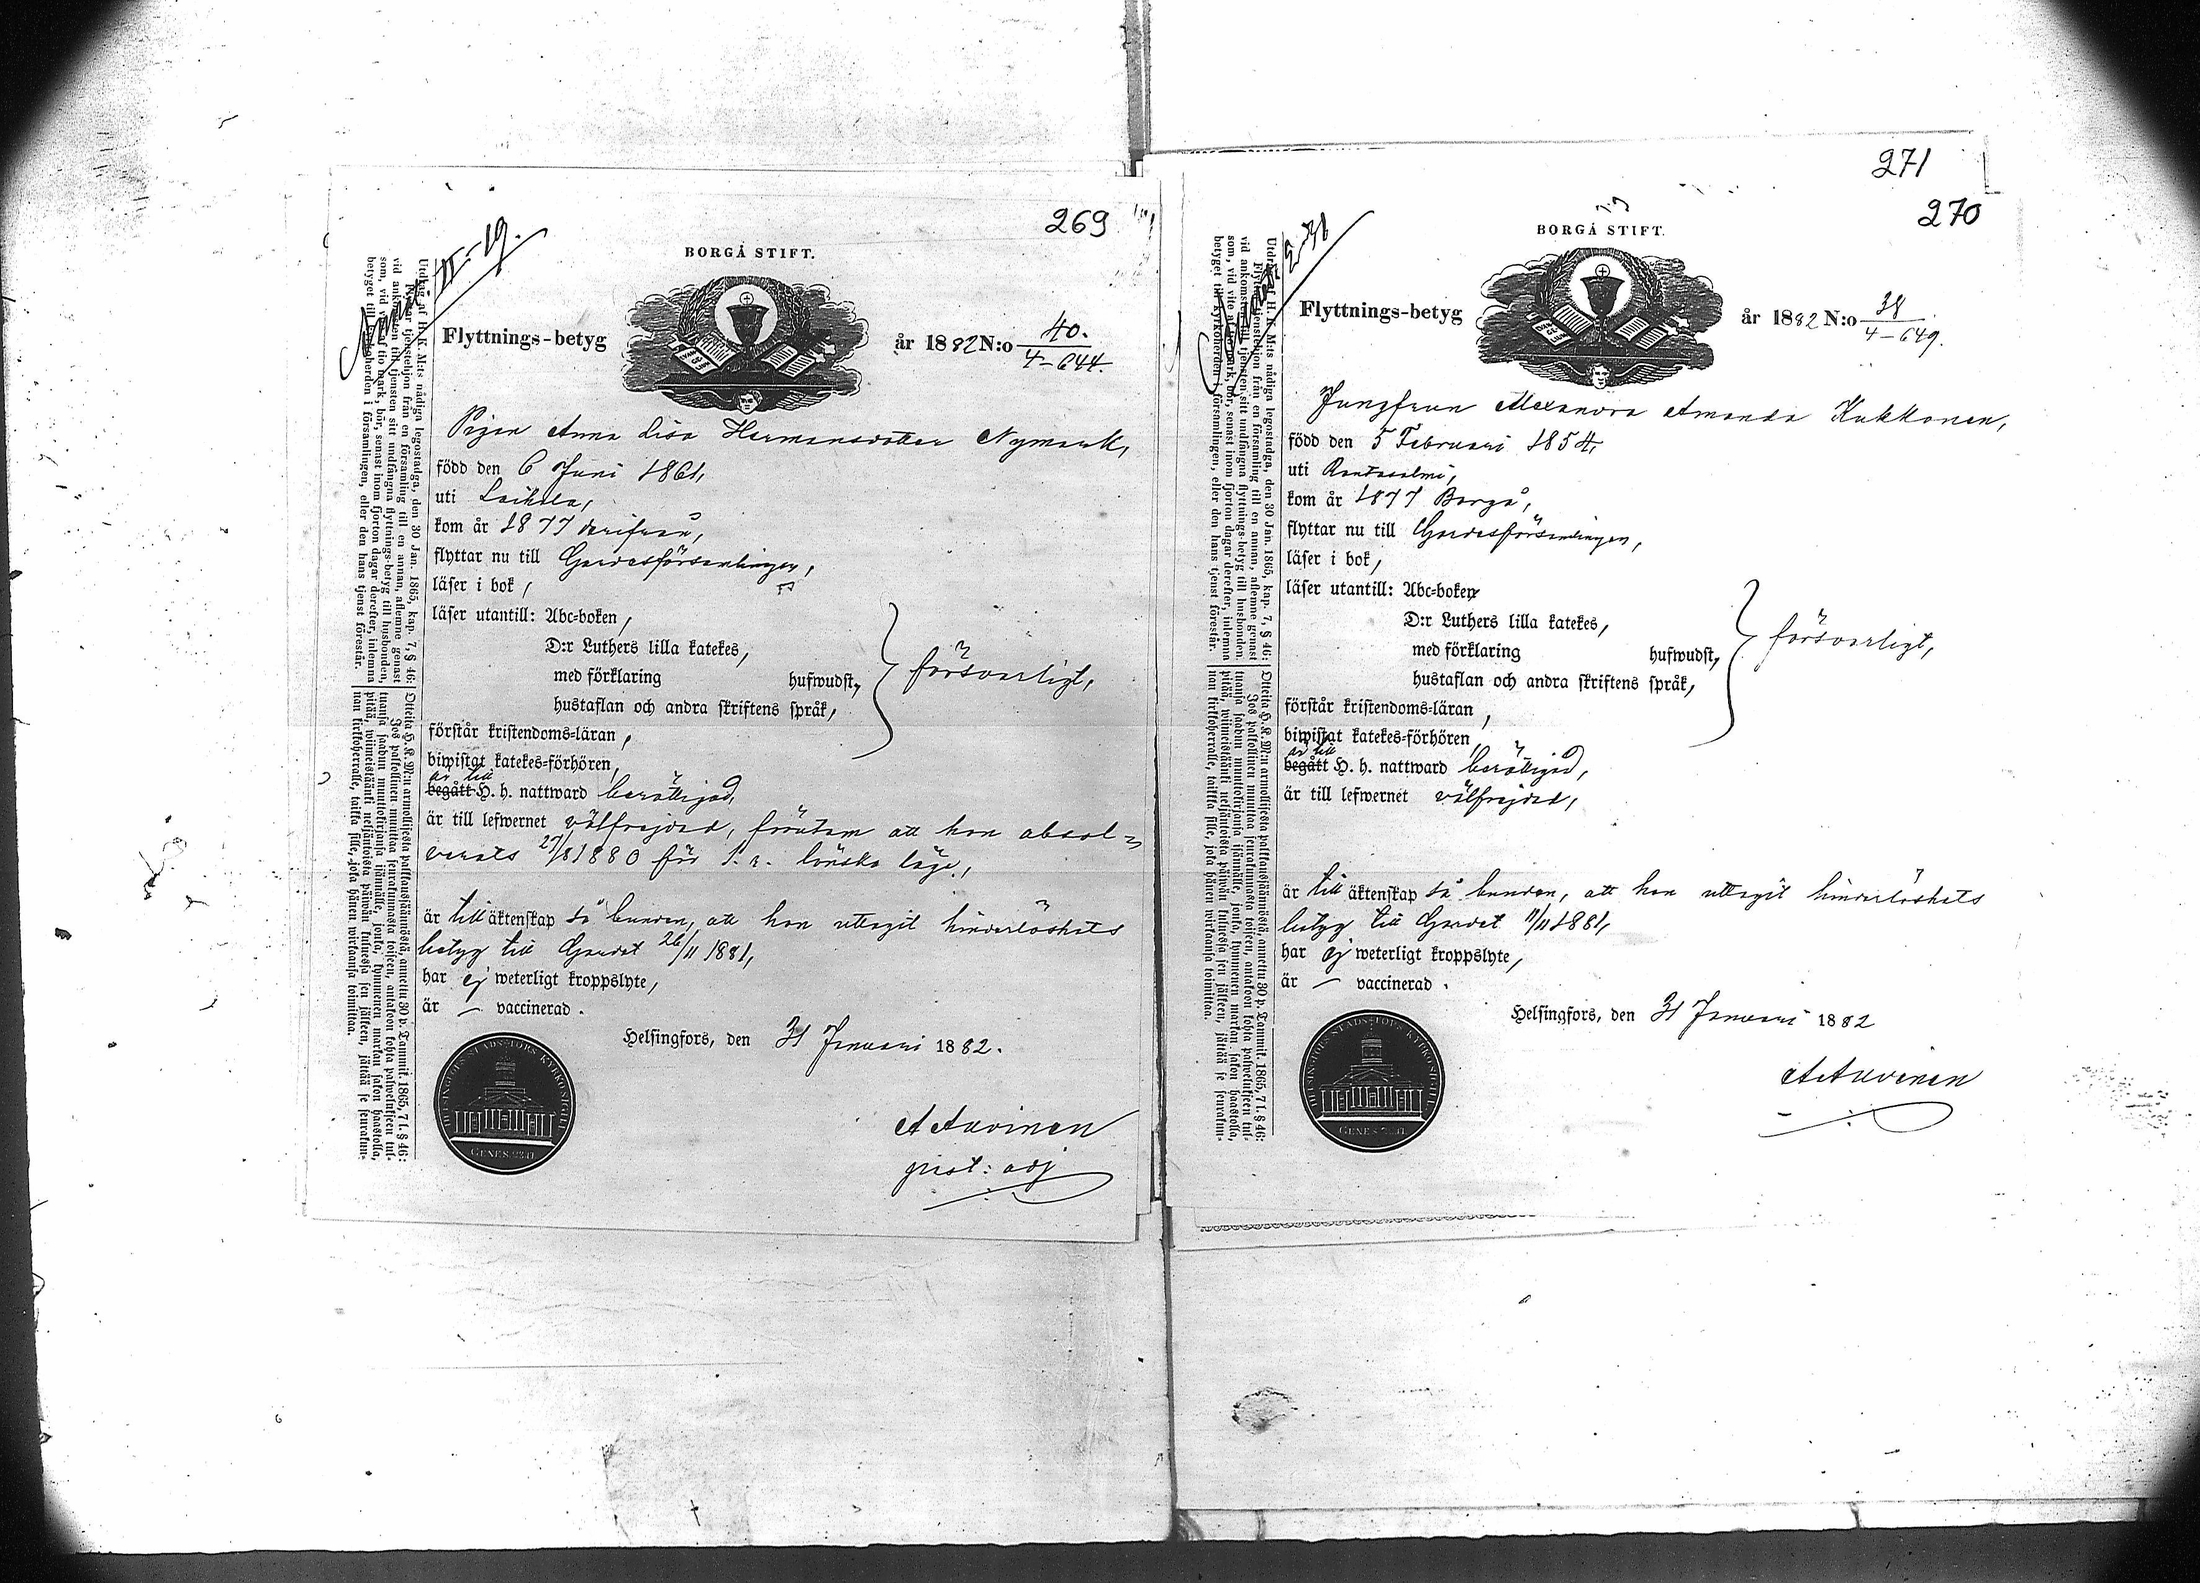 269
BORGÅ STIFT.
Flyttnings-betyg år 1882 N:o 40.
4-644.
Pigan Anna Lisa Hermansdotter Nymark,
född den 6 Juni 1861,
uti Laihela,
kom år 1877 derifrån,
flyttar nu till Gardesförsamlingen,
läser i bok,
läser utantill: Abc-boken,
D:r Luthers lilla katekes,
med förklaring hufwudst,
hustaflan och andra skriftens språk,
försvarligt,
förstår kristendoms-läran,
biwistat katekes-förhören,
är till
begått H. h. nattward berättigad,
är till lefwernet välfrejdad, förutom att hon absol=
verats 27/8 1880 för 1. r. lönska läge,
är till äktenskap så bunden, att hon uttagit hinderlöshets
betyg till Gardet 26/11 1881,
har ej weterligt kroppslyte,
är — vaccinerad.
Helsingfors, den 31 Januari 1882.
HELSINGFORS STADS FÖRS. KYRKOSIGILL
GENES.
A Auvinen
past: adj
Utdrag af H. K. M:ts nådiga legostadga, den 30 Jan. 1865, kap. 7, § 46:
Flyttar tjenstehjon från en församling till en annan, aflemne genast
vid ankomsten till tjensten sitt undfångna flyttnings-betyg till husbonden,
som, vid vite af tio mark, bör, senast inom fjorton dagar derefter, inlemna
betyget till kyrkoherden i församlingen, eller den hans tjenst förestår.
Otteita H. K. M:n armollisesta palkkaussäännöstä, annettu 30 p. Tammik. 1865, 7 l. § 46:
Jos palkollinen muuttaa seurakunnasta toiseen, antakoon kohta palwelukseen tul-
tuansa saadun muuttokirjansa isännälle, jonka, kymmenen markan sakon haastolla,
pitää, wiimeistänsä neljäntoista päiwän kuluessa sen jälkeen, jättää se seurakun-
nan kirkkoherralle, taikka sille, joka hänen wirkaansa toimittaa.
271
270
BORGÅ STIFT.
Flyttnings-betyg år 1882 N:o 38
4-649.
Jungfrun Alexandra Amanda Kukkonen,
född den 5 Februari 1854,
uti Rantasalmi,
kom år 1877 Borgå,
flyttar nu till Gardesförsamlingen,
läser i bok,
läser utantill: Abc-boken
D:r Luthers lilla katekes,
med förklaring hufwudst,
hustaflan och andra skriftens språk,
försvarligt,
förstår kristendoms-läran,
biwistat katekes-förhören
är till
begått H. h. nattward berättigad,
är till lefwernet välfrejdad,
är till äktenskap så bunden, att hon uttagit hinderlöshets
betyg till Gardet 11/11 1881,
har ej weterligt kroppslyte,
är — vaccinerad.
Helsingfors, den 31 Januari 1882
HELSINGFORS STADS FÖRS. KYRKOSIGILL
GENES.
A Auvinen
Utdrag af H. K. M:ts nådiga legostadga, den 30 Jan. 1865, kap. 7, § 46:
Flyttar tjenstehjon från en församling till en annan, aflemne genast
vid ankomsten till tjensten sitt undfångna flyttnings-betyg till husbonden,
som, vid vite af tio mark, bör, senast inom fjorton dagar derefter, inlemna
betyget till kyrkoherden i församlingen, eller den hans tjenst förestår.
Otteita H. K. M:n armollisesta palkkaussäännöstä, annettu 30 p. Tammik. 1865, 7 l. § 46:
Jos palkollinen muuttaa seurakunnasta toiseen, antakoon kohta palwelukseen tul-
tuansa saadun muuttokirjansa isännälle, jonka, kymmenen markan sakon haastolla,
pitää, wiimeistänsä neljäntoista päiwän kuluessa sen jälkeen, jättää se seurakun-
nan kirkkoherralle, taikka sille, joka hänen wirkaansa toimittaa.